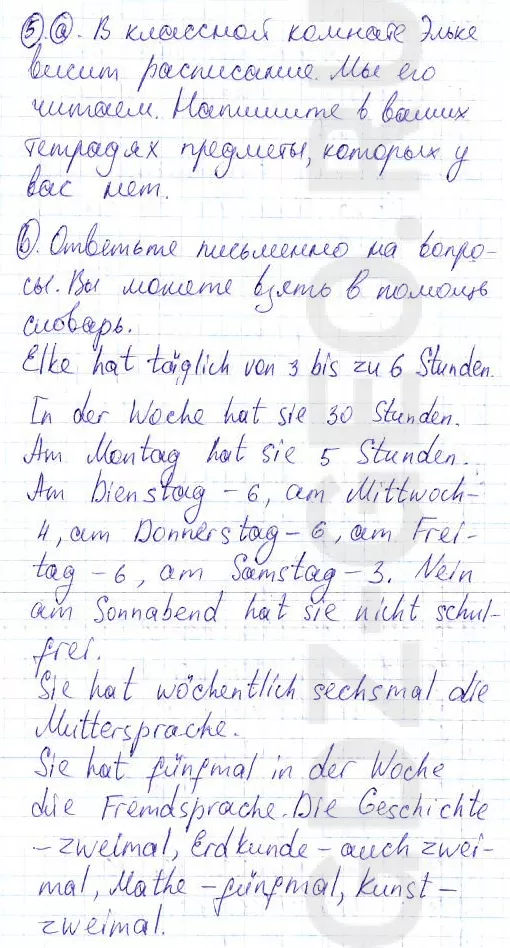 5. а. В классной комнате Эльке
висит расписание. Мы его
читаем. Напишите в ваших
тетрадях предметы, которых у
вас нет.
b. Ответьте письменно на вопро-
сы. Вы можете взять в помощь
словарь.
Elke hat täglich von 3 bis zu 6 Stunden.
In der Woche hat sie 30 Stunden.
Am Montag hat sie 5 Stunden.
Am Dienstag – 6, am Mittwoch –
4, am Donnerstag – 6, am Frei-
tag – 6, am Samstag – 3. Nein
am Sonnabend hat sie nicht schul-
frei.
Sie hat wöchentlich sechsmal die
Muttersprache.
Sie hat fünfmal in der Woche
die Fremdsprache. Die Geschichte
– zweimal, Erdkunde – auch zwei-
mal, Mathe – fünfmal, Kunst –
zweimal.
GDZ-GEO.RU